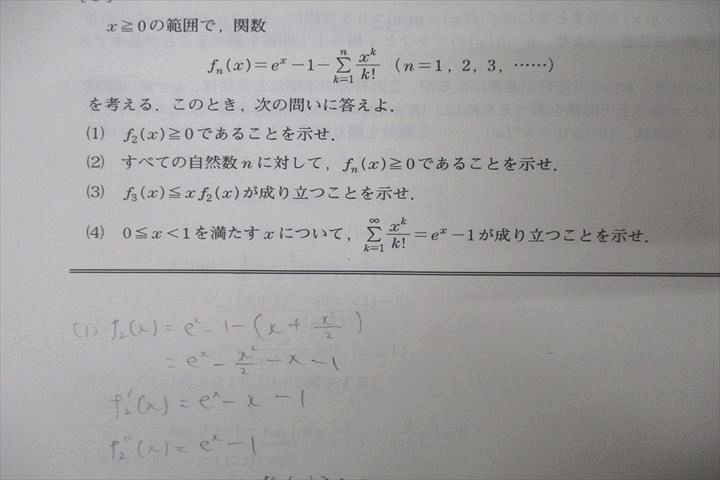 x≧0の範囲で，関数
fₙ(x)=eˣ−1−∑ₖ₌₁ⁿ xᵏ/k! （n=1，2，3，……）
を考える．このとき，次の問いに答えよ．
(1) f₂(x)≧0であることを示せ．
(2) すべての自然数nに対して，fₙ(x)≧0であることを示せ．
(3) f₃(x)≦xf₂(x)が成り立つことを示せ．
(4) 0≦x<1を満たすxについて，∑ₖ₌₁^∞ xᵏ/k!=eˣ−1が成り立つことを示せ．
(1) f₂(x) = eˣ − 1 − (x + x²/2)
= eˣ − x²/2 − x − 1
f₂'(x) = eˣ − x − 1
f₂''(x) = eˣ − 1